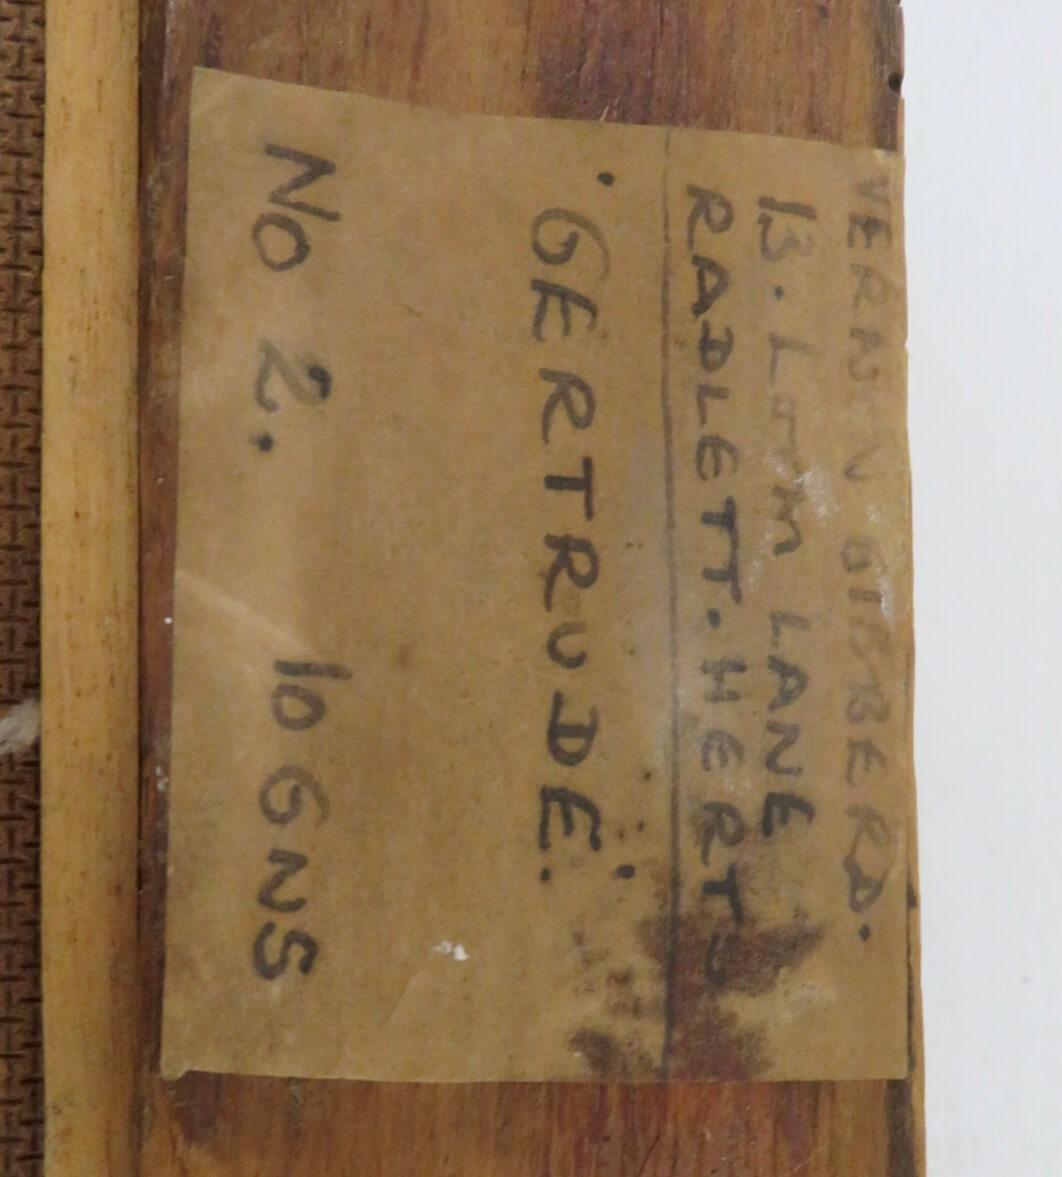 VERNON GIBBERD.
13. LOOM LANE
RADLETT. HERTS
'GERTRUDE.'
NO 2. 10 GNS